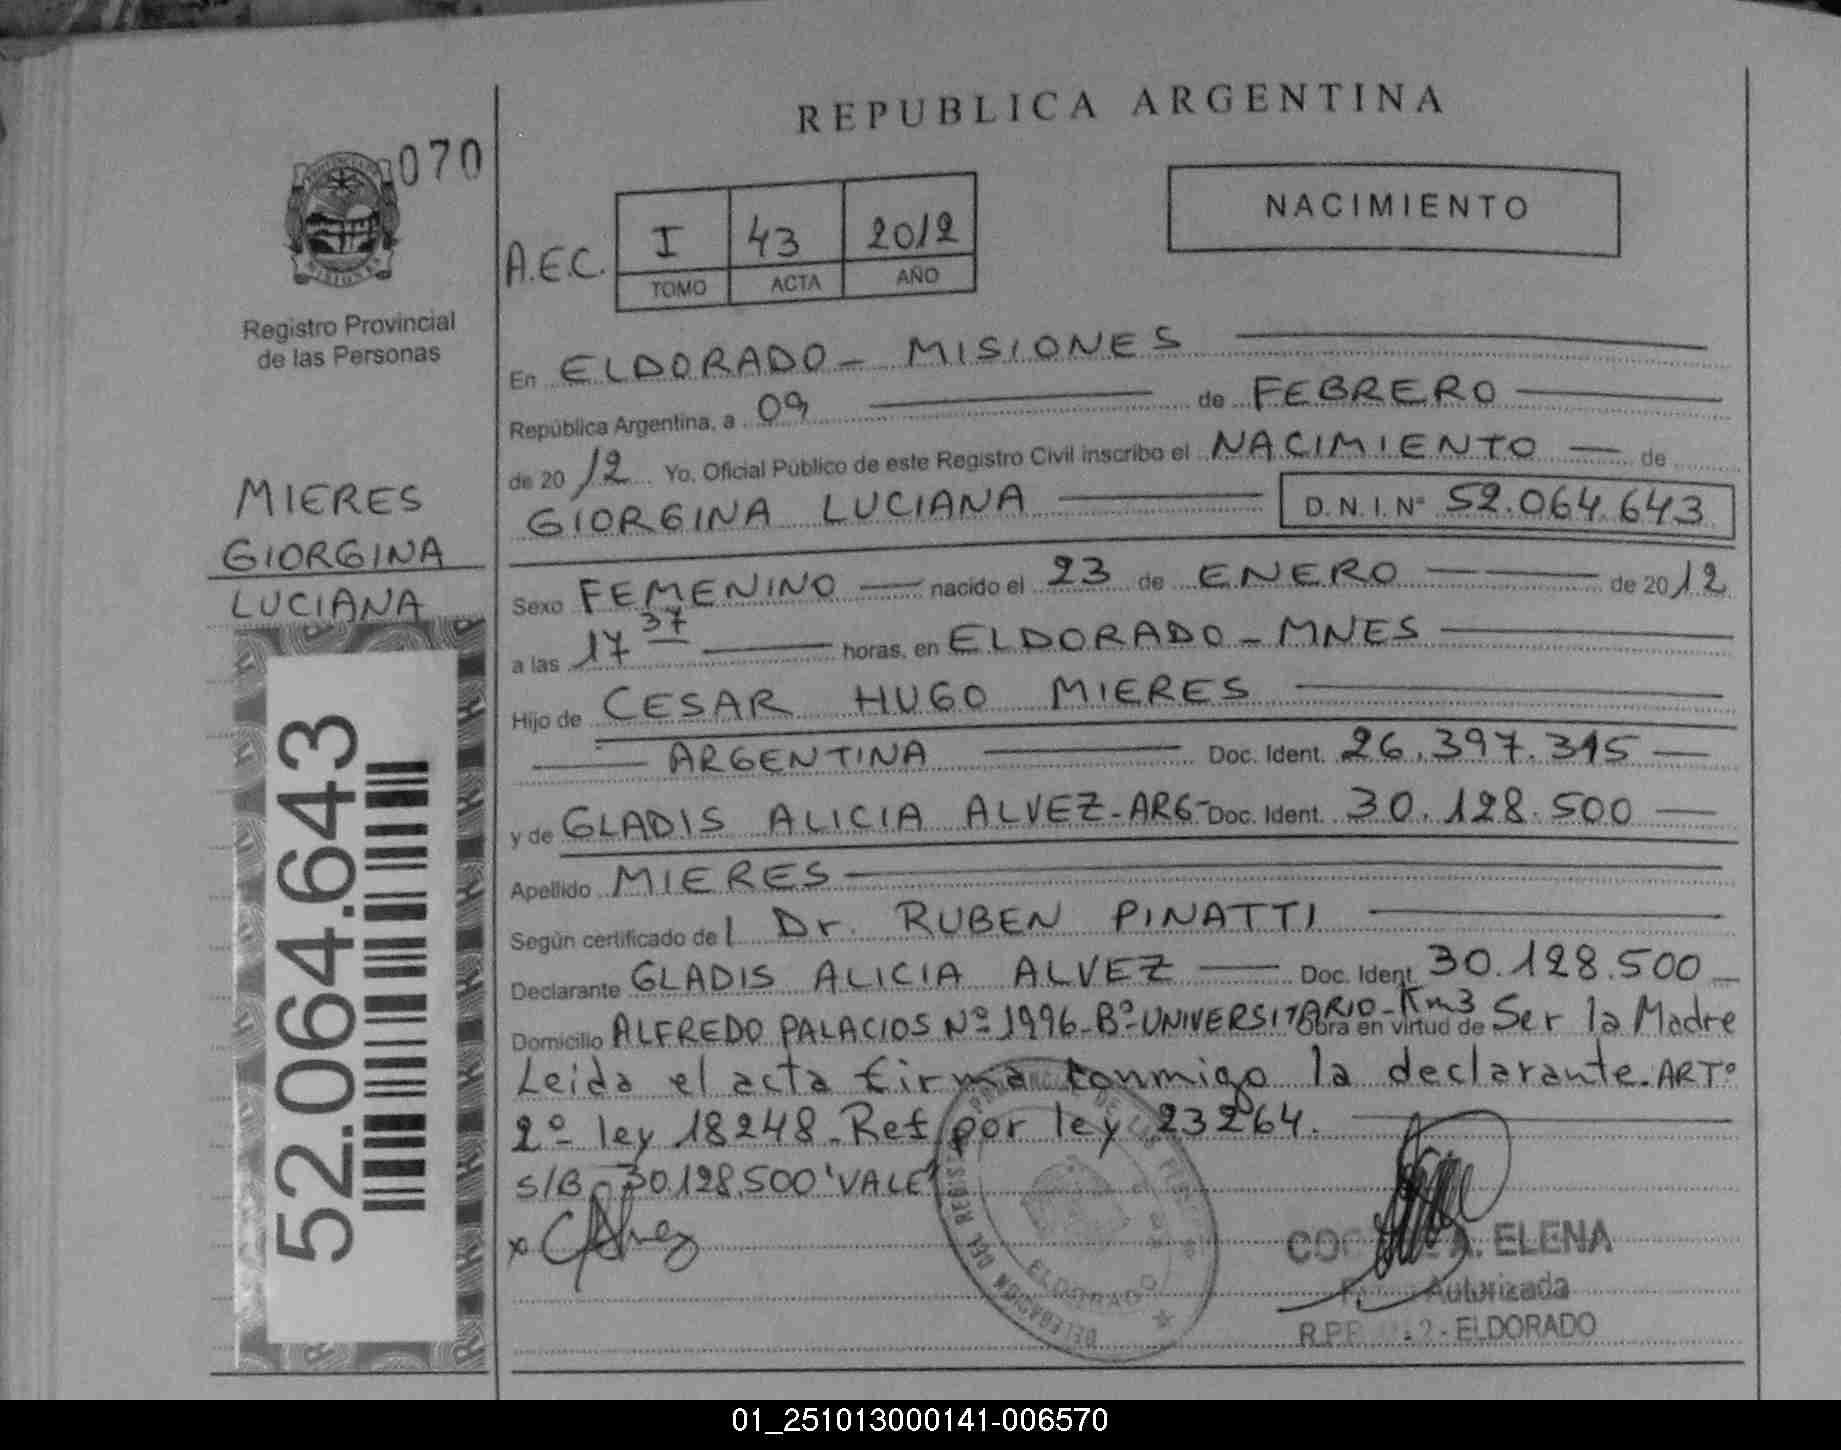 REPUBLICA ARGENTINA
070
NACIMIENTO
A.E.C.
I 43 2012
TOMO ACTA AÑO
Registro Provincial
de las Personas
MIERES
GIORGINA
LUCIANA
52.064.643
En ELDORADO - MISIONES
República Argentina, a 09 de FEBRERO
de 20 12 Yo, Oficial Público de este Registro Civil inscribo el NACIMIENTO de
GIORGINA LUCIANA D.N.I. Nº 52.064.643
Sexo FEMENINO nacido el 23 de ENERO de 20 12
a las 17 37 horas, en ELDORADO - MNES
Hijo de CESAR HUGO MIERES
ARGENTINA Doc. Ident. 26.397.315
y de GLADIS ALICIA ALVEZ - ARG - Doc. Ident. 30.128.500
Apellido MIERES
Según certificado de l Dr. RUBEN PINATTI
Declarante GLADIS ALICIA ALVEZ Doc. Ident. 30.128.500
Domicilio ALFREDO PALACIOS Nº 1996 - Bº - UNIVERSITARIO - Km3 Obra en virtud de Ser la Madre
Leida el acta firma conmigo la declarante. ARTº
2º - ley 18248 - Ref por ley 23264.
S/B 30.128.500 'VALE'
x
ELDORADO
A. ELENA
Autorizada
ELDORADO
01_251013000141-006570